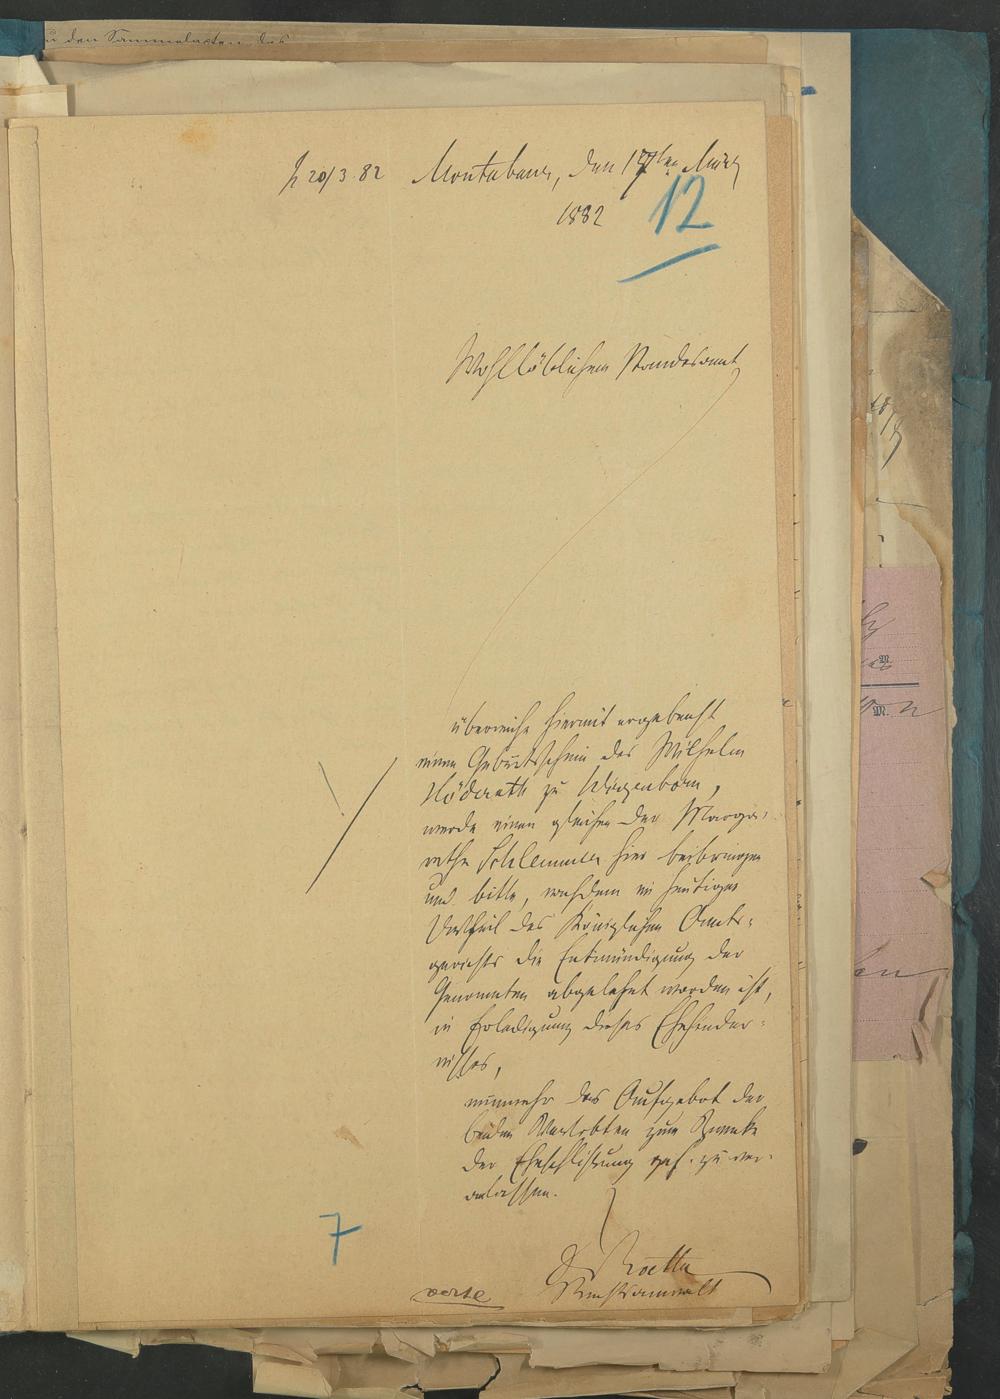 zu den Sammelakten des
20/3 82 Montabaur, den 17ten März
1882
12
Wohllöblichem Standesamt
überreiche hiermit ergebenst
einen Geburtsschein des Wilhelm
Nöderath zu Wirzenborn,
werde einen gleichen der Marga-
rethe Schlemmer hier beibringen
und bitte, nachdem im heutigen
Urtheil des Königlichen Amts-
gerichts die Entmündigung der
Genannten abgelehnt worden ist,
in Erledigung dieses Ehehinder-
nisses,
nunmehr das Aufgebot der
beiden Verlobten zum Zwecke
der Eheschließung gef. zu ver-
anlassen.
7
Dr
Rechtsanwalt
verte